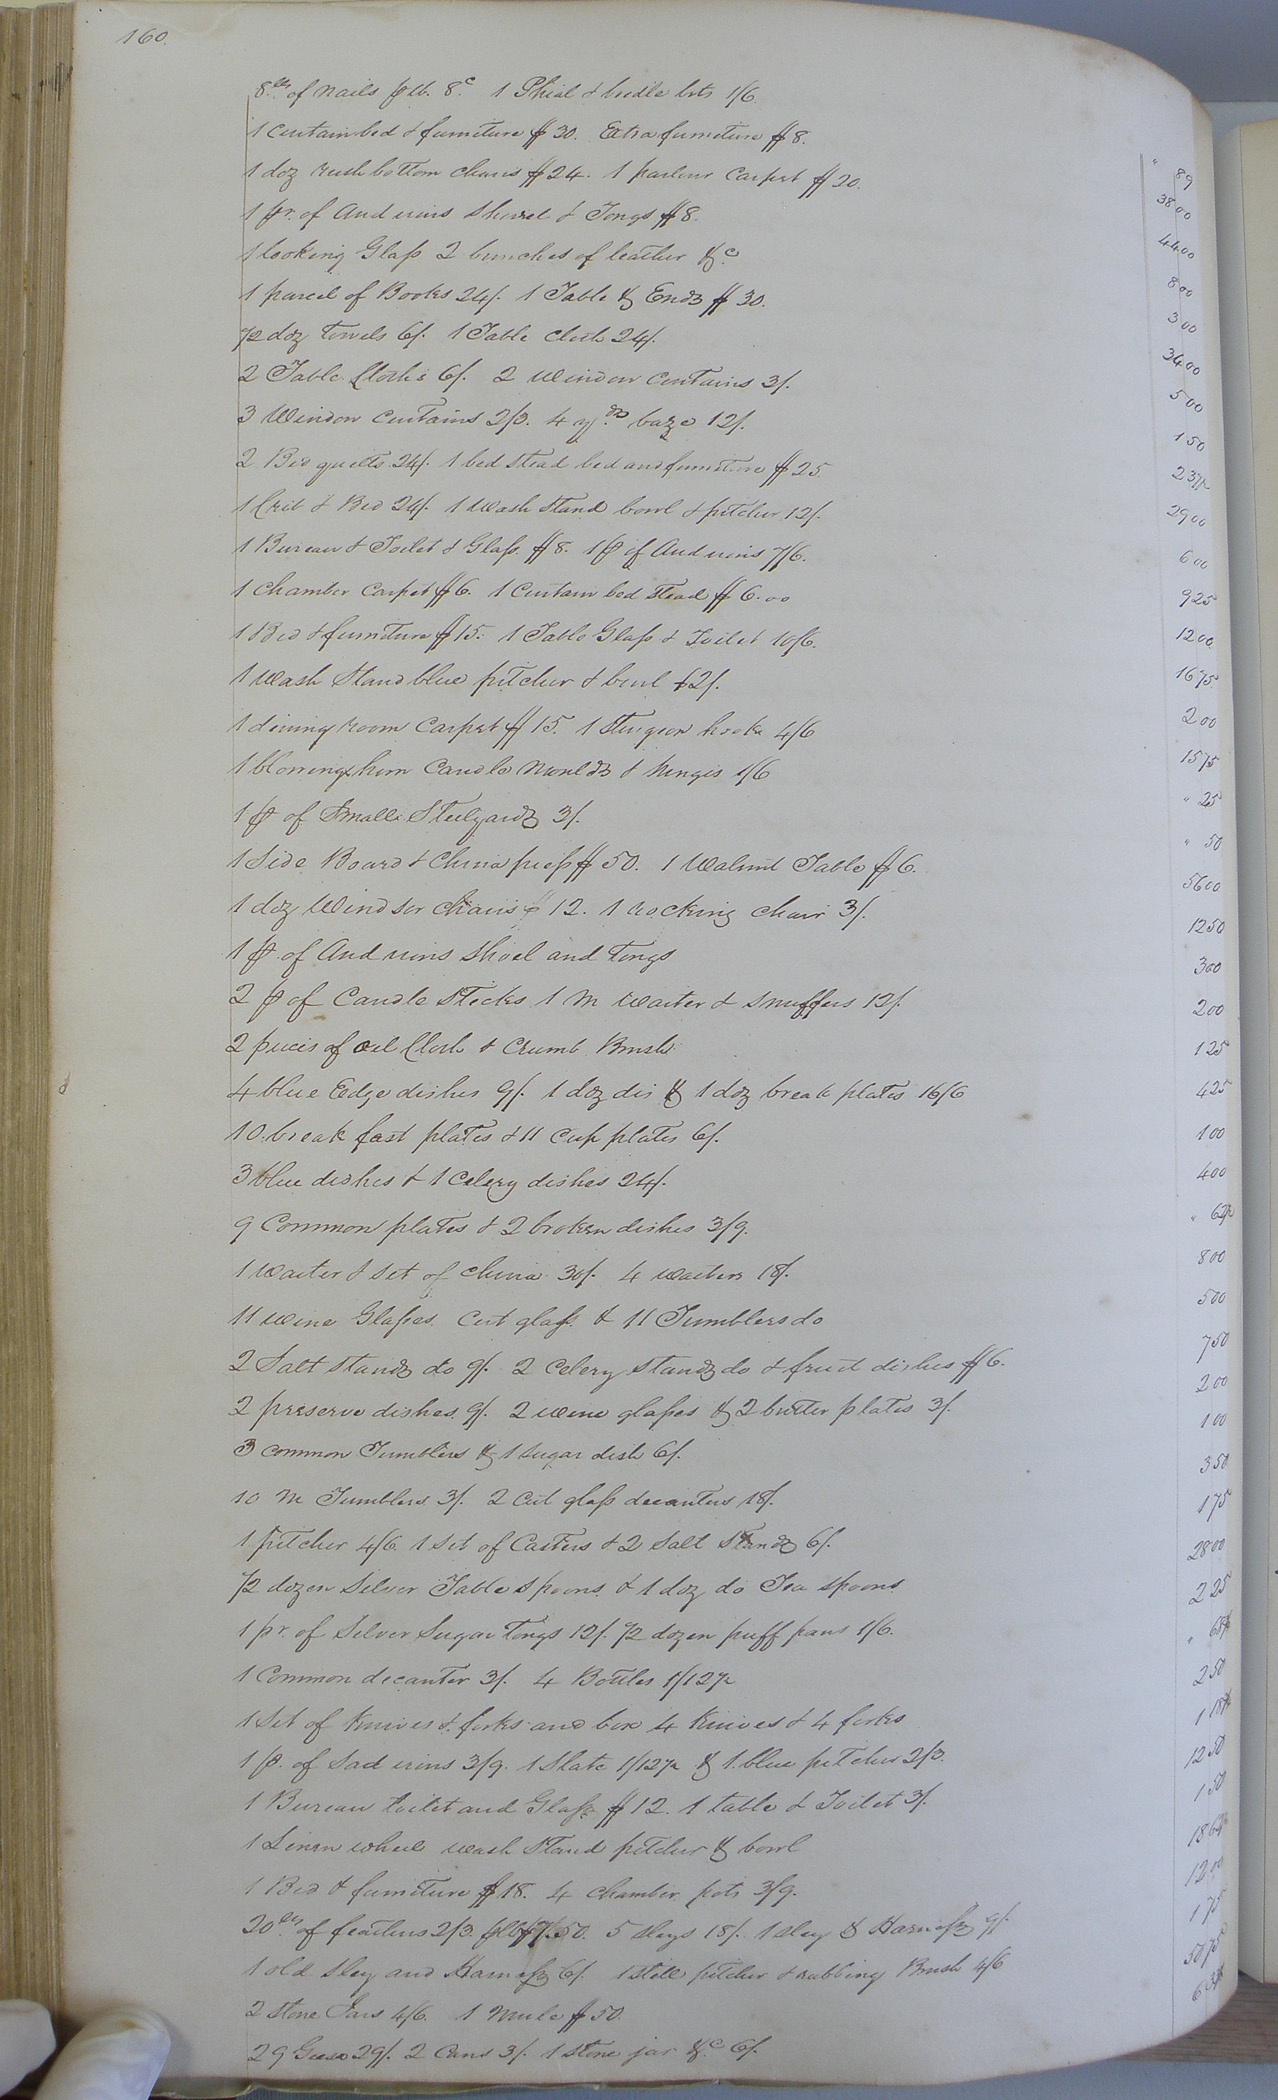 160.
8lbs of nails pr lb. 8c 1 Phial & bridle bits 1/6 " 89
1 Curtain bed & furniture $30. Extra furniture $8. 38 00
1 doz rush bottom chairs $24. 1 parlour Carpet $20. 44 00
1 pr. of And irons Shovel & Tongs $8. 8 00
1 looking Glass 2 bunches of leather &c 3 00
1 parcel of Books 24/. 1 Table & Ends $30. 34 00
1/2 doz towels 6/. 1 Table cloth 24/. 5 00
2 Table Cloths 6/. 2 Window Curtains 3/. 1 50
3 Window Curtains 2/3. 4 yds baze 12/. 2 37 1/2
2 Bed quilts 24/. 1 bed stead bed and furniture $25. 29 00
1 Crib & Bed 24/. 1 Wash Stand bowl & pitcher 12/. 6 00
1 Bureau & Toilet & Glass $8. 1 p of And irons 7/6. 9 25
1 Chamber Carpet $6. 1 Curtain bed stead $6.00 12 00
1 Bed & furniture $15. 1 Table Glass & Toilet 10/6. 16 75
1 Wash Stand blue pitcher & bowl 12/. 2 00
1 dining room Carpet $15. 1 Sturgeon hook 4/6 15 75
1 blowing horn Candle Moulds & hinges 1/6 " 25
1 p of Small Steelyards 3/. " 50
1 Side Board & China press $50. 1 Walnut Table $6. 56 00
1 doz Windsor Chairs $12. 1 rocking chair 3/. 12 50
1 p of And irons Shoel and Tongs 3 00
2 p of Candle Sticks 1 m Waiter & Snuffers 12/. 2 00
2 pieces of Oil Cloth & Crumb Brush 1 25
4 blue Edge dishes 9/. 1 doz dis & 1 doz break plates 16/6 4 25
10 break fast plates & 11 Cup plates 6/. 1 00
3 blue dishes & 1 Celery dishes 24/. 4 00
9 Common plates & 2 broken dishes 3/9. " 62 1/2
1 Waiter & Set of china 30/. 4 waiters 18/. 8 00
11 wine Glasses Cut glass & 11 Tumblers do 5 00
2 Salt Stands do 9/. 2 Celery Stands do & fruit dishes $6. 7 50
2 preserve dishes 9/. 2 wine glasses & 2 butter plates 3/. 2 00
3 common Tumblers & 1 Sugar dish 6/. 1 00
10 m Tumblers 3/. 2 Cut glass decanters 18/. 3 50
1 pitcher 4/6. 1 Set of Castors & 2 Salt Stands 6/. 1 75
1/2 dozen Silver Table Spoons & 1 doz do Tea Spoons 28 00
1 pr. of Silver Sugar Tongs 12/. 1/2 dozen puff pans 1/6. 2 25
1 Common decanter 3/. 4 Bottles 1/1 1/2 "
1 Set of Knives & forks and box 4 Knives & 4 forks 2 50
1 p. of Sad irons 3/9. 1 Slate 1/1 1/2 & 1 blue pitcher 2/3.
1 Bureau toilet and Glass $12. 1 table & Toilet 3/. 12 50
1 Linen wheel wash Stand pitcher & bowl 1 50
1 Bed & furniture $18. 4 chamber pots 3/9. 18 62 1/2
20lbs of feathers 2/3. 5 sleys 18/. 1 sley & Harness 9/. 12 00
1 old sley and Harness 6/. 1 still pitcher & rubbing Brush 4/6 1 75
2 Stone Jars 4/6. 1 Mule $50. 50 75
29 Geese 29/. 2 Cans 3/. 1 Stone jar &c 6/.